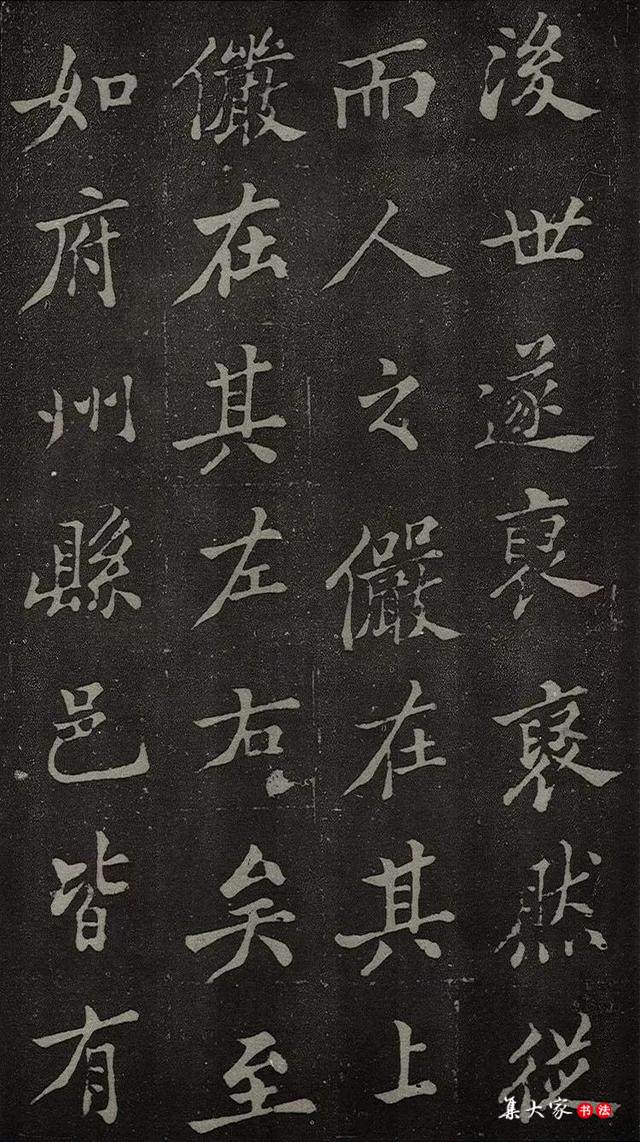 後世遂然從
而人之儼在其上
儼在其左右矣至
如府州縣邑皆有
集大家书法